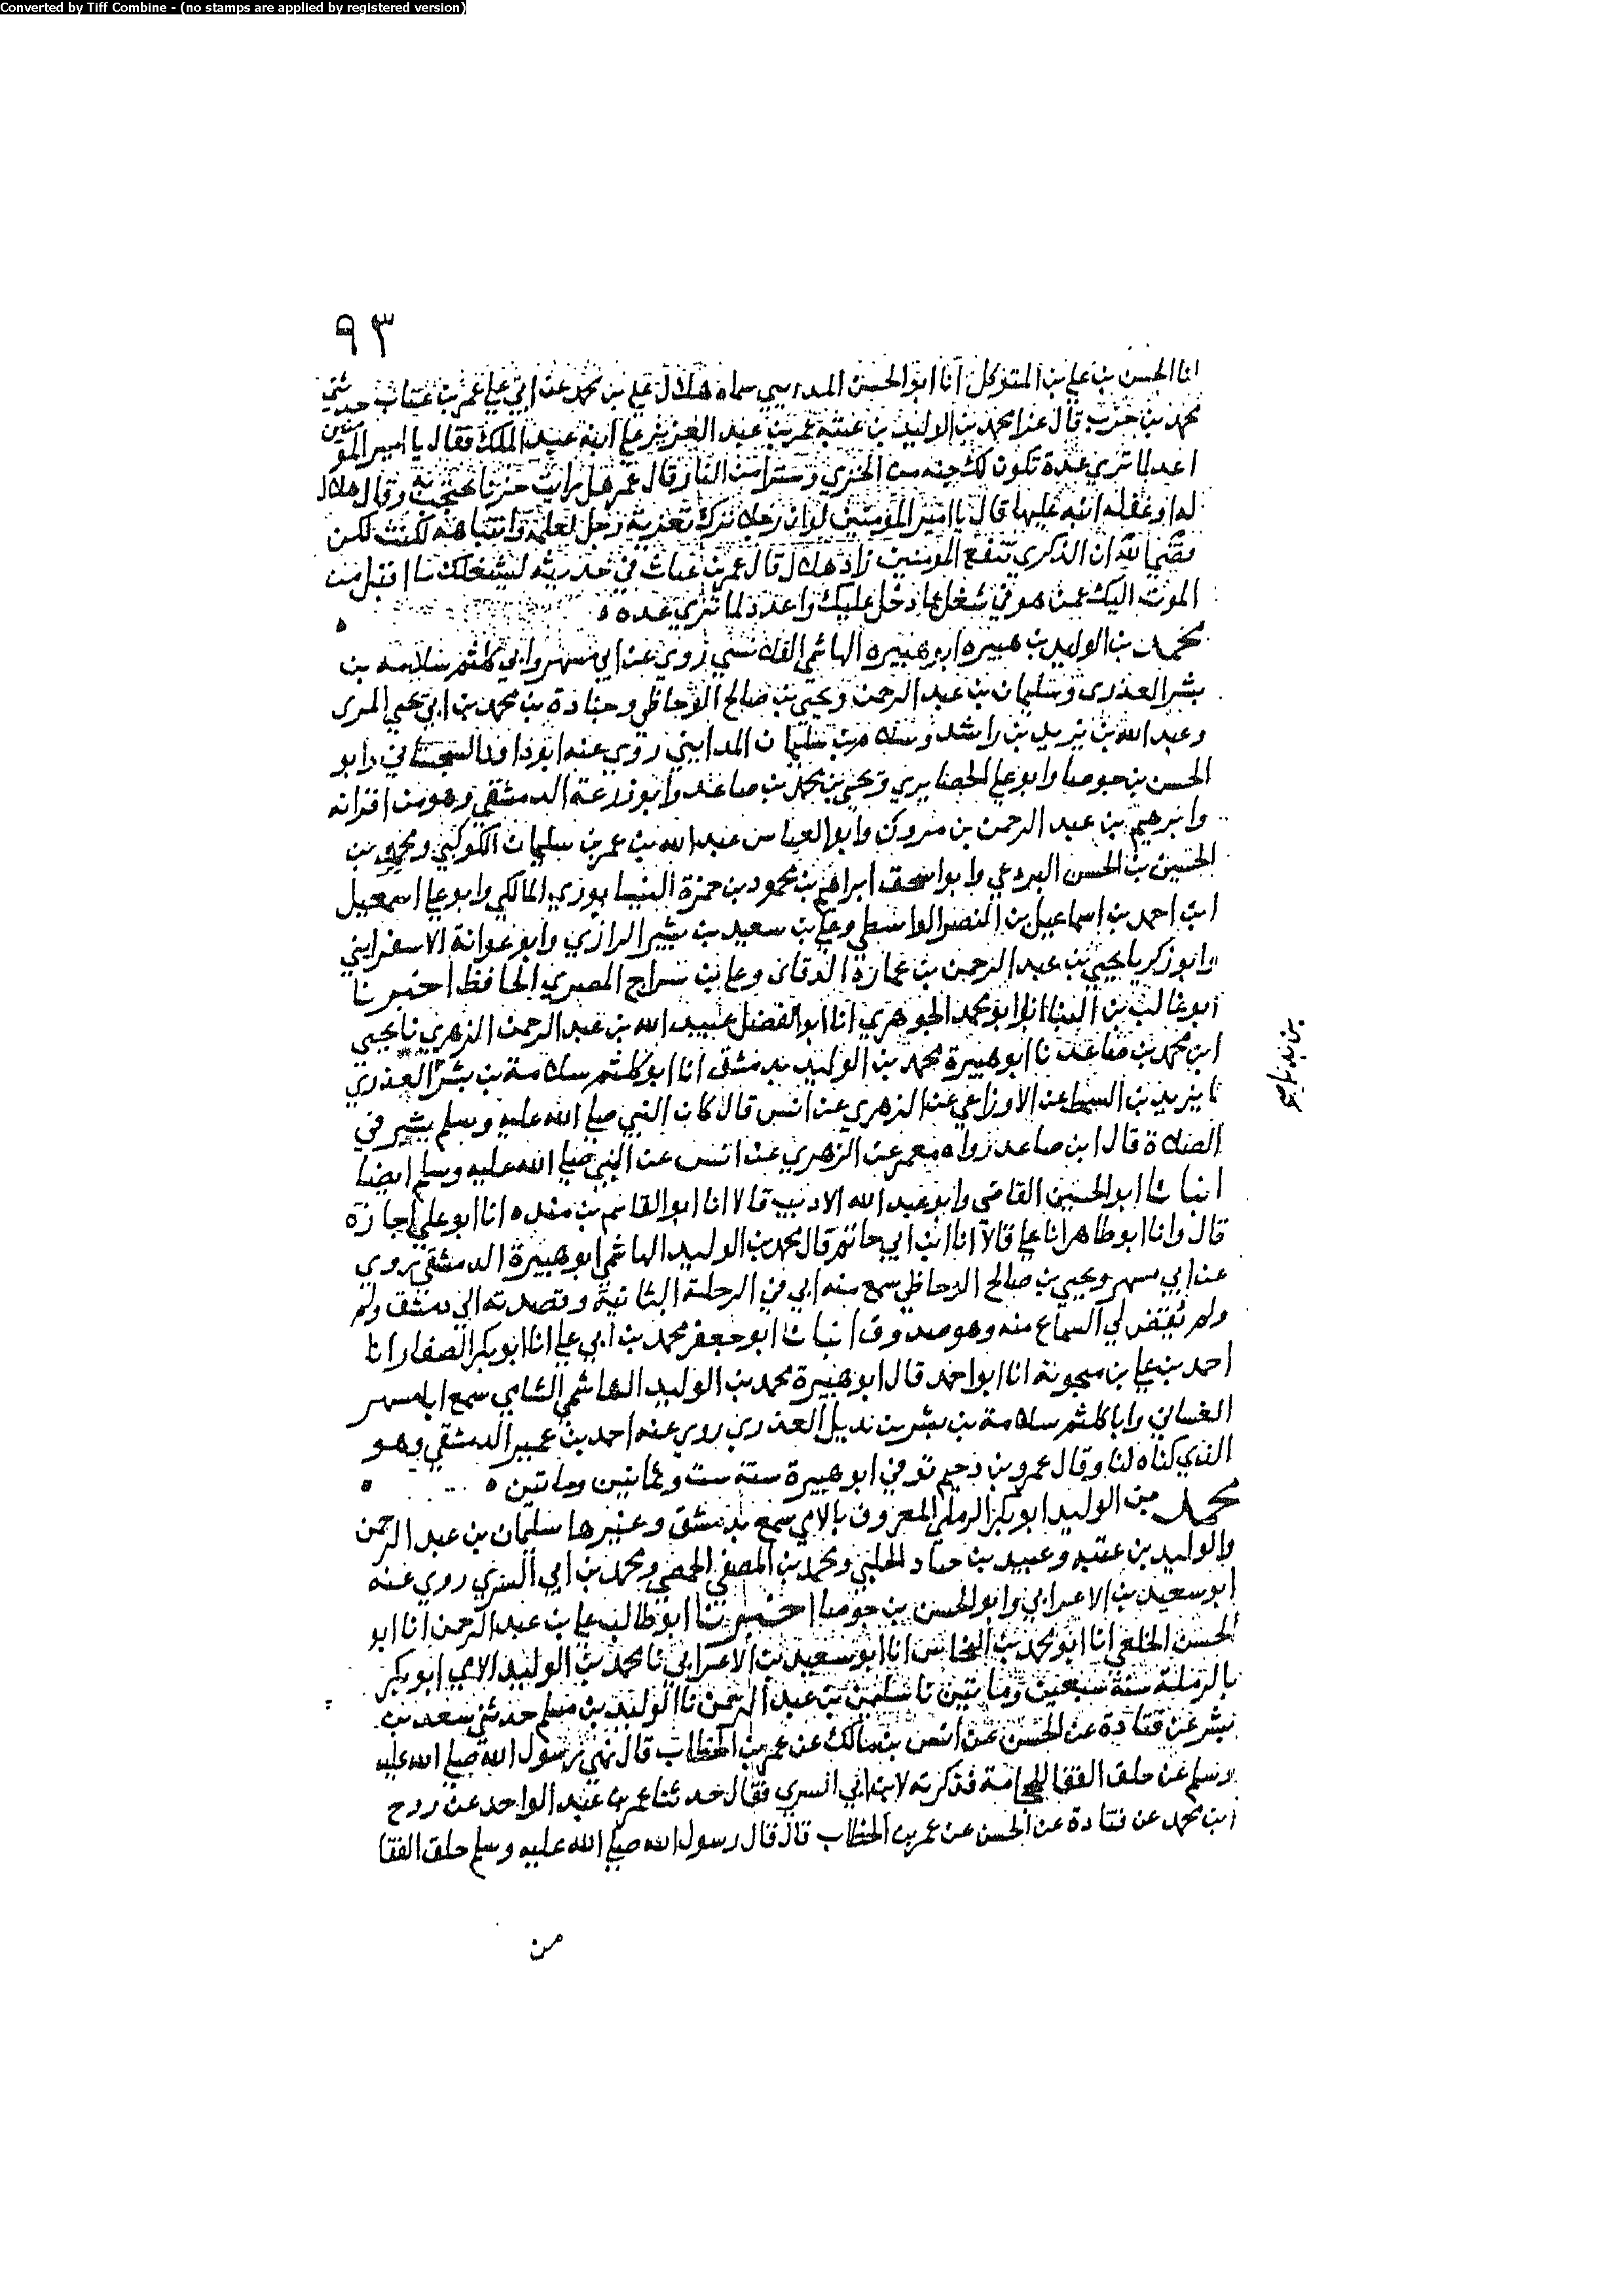 Converted by Tiff Combine - (no stamps are applied by registered version)
٩٣
انا الحسن بن علي بن المتوكل انا ابو الحسن المدايني سماه هلال علي بن محمد عن ابي علي عمر بن غياث حدثني
محمد بن حرب قال عزا محمد بن الوليد بن عتبة عمر بن عبد العزيز علي ابنه عبد الملك فقال يا امير المؤمنين
اعد لما تري عدة تكون لك جنه من الحزن وسترا من النار وقال عمر هل رايت حزنا يحتج به وقال هلال
له او غفله انبه عليها قال يا امير المؤمنين لو ان رجلا ترك تعزية رجل لعلمه وانتباهه لكنت لكن
قضي الله ان الذكري تنفع المومنين زاد هلال قال عمر بن غياث في حديثه ليشغلك ما اقبل من
الموت اليك عمن هو في شغل عما دخل عليك واعدد لما تري عده ه
محمد بن الوليد بن هبيره ابو هبيره الهاشمي القلانسي روي عن ابي مسهر وابي كلثم سلامه بن
بشر العذري وسليمان بن عبد الرحمن ويحيي بن صالح الوحاظي وجنادة بن محمد بن ابي يحيي المري
وعبد الله بن يزيد بن راشد وسلامة بن سليمان المدايني روي عنه ابو داود السجستاني وابو
الحسن بن جوصا وابو علي الحصايري ويحيي بن محمد بن صاعد وابو زرعة الدمشقي وهو من اقرانه
وابرهيم بن عبد الرحمن بن مروان وابو العباس عبد الله بن عمر بن سليمان الكوكبي ومحمد بن
الحسين بن الحسن البردعي وابو اسحق ابراهيم بن محمود بن حمزة النيسابوري المالكي وابو علي اسمعيل
ابن احمد بن اسماعيل بن النصر الواسطي وعلي بن سعيد بن بشير الرازي وابو عوانة الاسفرايني
وابو زكريا يحيي بن عبد الرحمن بن عمارة الدقاق وعلي بن سراج المصري الحافظ اخبرنا
ابو غالب بن البنا انا ابو محمد الجوهري انا ابو الفضل عبيد الله بن عبد الرحمن الزهري نا يحيي
ابن محمد بن صاعد نا ابو هبيرة محمد بن الوليد بدمشق انا ابو كلثم سلامة بن بشر العذري
نا يزيد بن السمط عن الاوزاعي عن الزهري عن انس قال كان النبي صلي الله عليه وسلم يشير في
الصلاة قال ابن صاعد رواه معمر عن الزهري عن انس عن النبي صلي الله عليه وسلم ايضا
انبانا ابو الحسين القاضي وابو عبد الله الاديب قالا انا ابو القاسم بن منده انا ابو علي اجازة
قال وانا ابو طاهر انا علي قالا انا ابن ابي حاتم قال محمد بن الوليد الهاشمي ابو هبيرة الدمشقي يروي
عن ابي مسهر ويحيي بن صالح الوحاظي سمع منه ابي في الرحلة الثانية وقصدته الي دمشق ولم
ولم يقض لي السماع منه وهو صدوق انبانا ابو جعفر محمد بن ابي علي انا ابو بكر الصفار انا
احمد بن علي بن منجونه انا ابو احمد قال ابو هبيرة محمد بن الوليد الهاشمي الشامي سمع ابا مسهر
الغساني وابا كلثم سلامة بن بشر بن بديل العذري روي عنه احمد بن عمير الدمشقي وهو
الذي كناه لنا وقال عمرو بن دحيم توفي ابو هبيرة سنة ست وثمانين ومائتين ه
محمد بن الوليد ابو بكر الرملي المعروف بالامي سمع بدمشق وغيرها سليمان بن عبد الرحمن
والوليد بن عتبه وعبيد بن جناد الحلبي ومحمد بن المصفي الحمصي ومحمد بن ابي السري روي عنه
ابو سعيد بن الاعرابي وابو الحسن بن جوصا اخبرنا ابو طالب علي بن عبد الرحمن انا ابو
الحسن الخلعي انا ابو محمد بن النحاس انا ابو سعيد بن الاعرابي نا محمد بن الوليد الامي ابو بكر
بالرملة سنة سبعين ومايتين نا سليمن بن عبد الرحمن نا الوليد بن مسلم حدثني سعيد بن
بشر عن قتادة عن الحسن عن انس بن مالك عن عمر بن الخطاب قال نهي رسول الله صلي الله عليه
وسلم عن حلق القفا للحجامة فذكرته لابن ابي السري فقال حدثنا عمر بن عبد الواحد عن روح
ابن محمد عن قتادة عن الحسن عن عمر بن الخطاب قال قال رسول الله صلي الله عليه وسلم حلق القفا
من